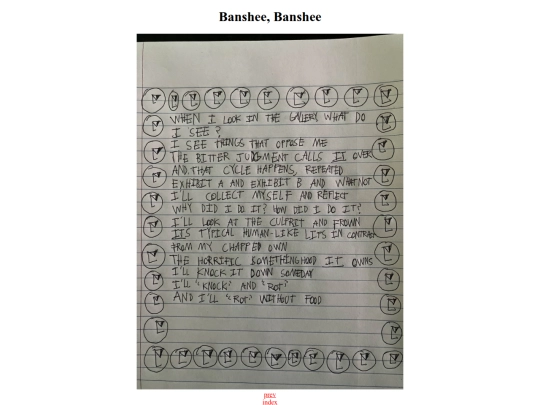 Banshee, Banshee
WHEN I LOOK IN THE GALLERY WHAT DO
I SEE?
I SEE THINGS THAT OPPOSE ME
THE BITTER JUDGMENT CALLS IT OVER
AND THAT CYCLE HAPPENS, REPEATED
EXHIBIT A AND EXHIBIT B AND WHATNOT
I'LL COLLECT MYSELF AND REFLECT
WHY DID I DO IT? HOW DID I DO IT?
I'LL LOOK AT THE CULPRIT AND FROWN
ITS TYPICAL HUMAN-LIKE LITS IN CONTRAST
FROM MY CHAPPED OWN
THE HORRIFIC SOMETHINGHOOD IT OWNS
I'LL KNOCK IT DOWN SOMEDAY
I'LL "KNOCK" AND "ROT"
AND I'LL "ROT" WITHOUT FOOD
index